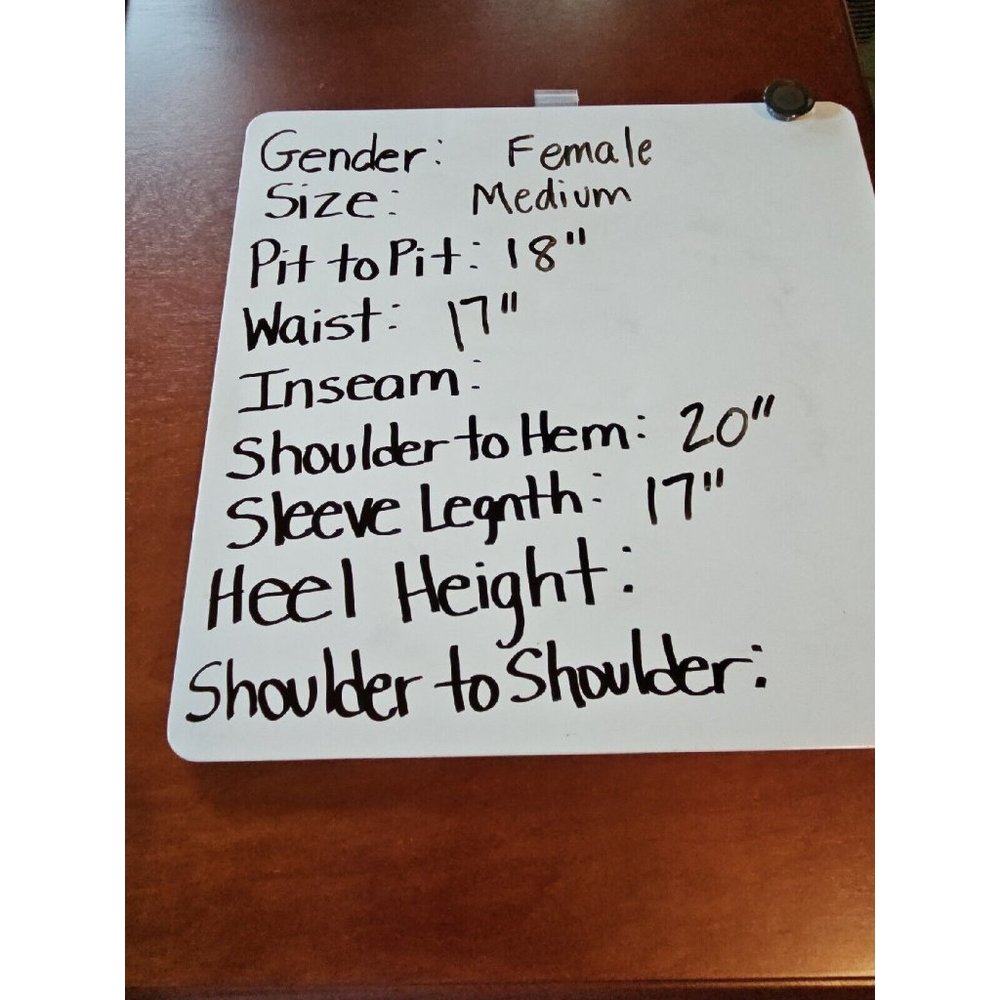 Gender: Female
Size: Medium
Pit to Pit: 18"
Waist: 17"
Inseam:
Shoulder to Hem: 20"
Sleeve Legnth: 17"
Heel Height:
Shoulder to Shoulder: